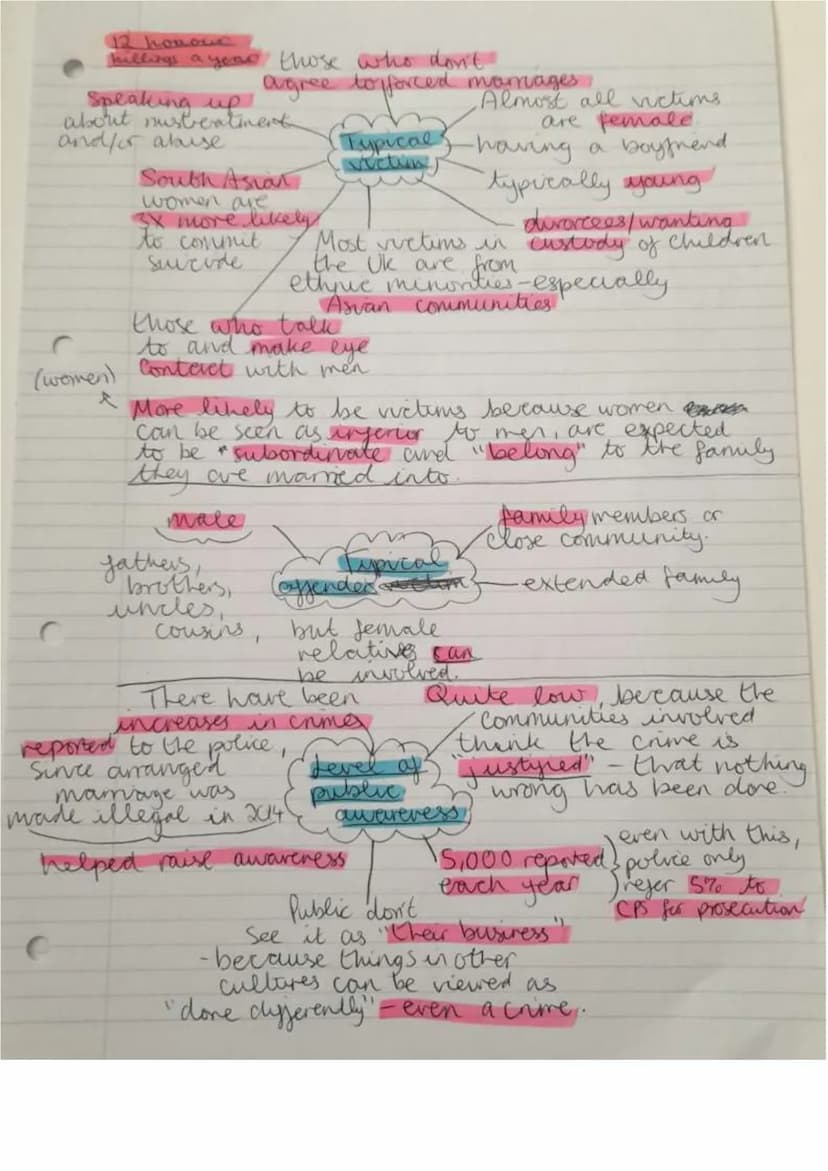 12 honour
killings a year
those who don't
agree to forced marriages
Speaking up
about mistreatment
and/or abuse
Typical
victim
Almost all victims
are female
having a boyfriend
typically young
South Asian
women are
3x more likely
to commit
suicide
divorcees/wanting
custody of children
Most victims in
the UK are from
ethnic minorities - especially
Asian communities
those who talk
to and make eye
contact with men
(women)
More likely to be victims because women
can be seen as inferior to men, are expected
to be "subordinate and "belong" to the family
they are married into.
male
family members or
close community.
Typical
offender victim
extended family
fathers,
brothers,
uncles,
cousins,
but female
relatives can
be involved.
There have been
increases in crimes
reported to the police,
since arranged
marriage was
made illegal in 2014
helped raise awareness
Level of
public
awareness
Quite low, because the
communities involved
think the crime is
"justified" - that nothing
wrong has been done.
5,000 reported
each year
even with this,
police only
refer 5% to
CPS for prosecution
Public don't
see it as "their business"
- because things in other
cultures can be viewed as
"done differently" - even a crime.